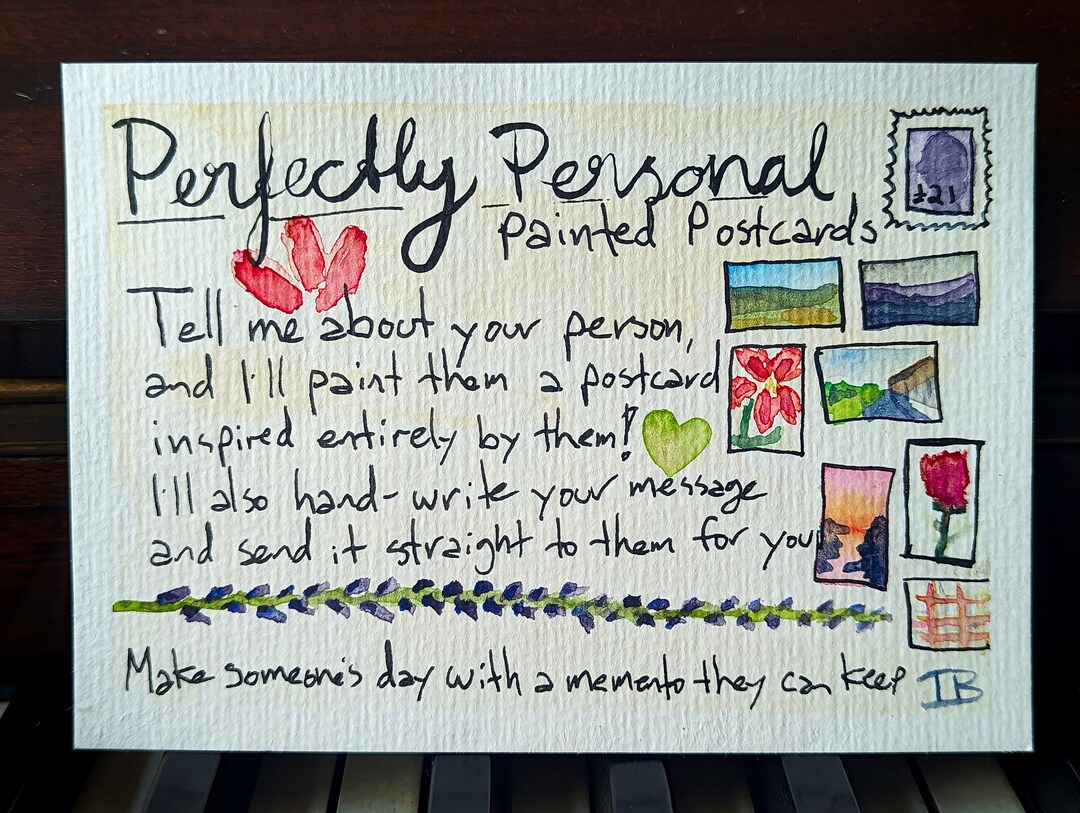 Perfectly Personal
Painted Postcards
£21
Tell me about your person,
and I'll paint them a postcard
inspired entirely by them!
I'll also hand-write your message
and send it straight to them for you
Make someone's day with a memento they can keep
IB